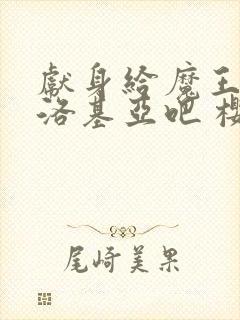 獻身給魔王
洛基亞吧
尾崎美果